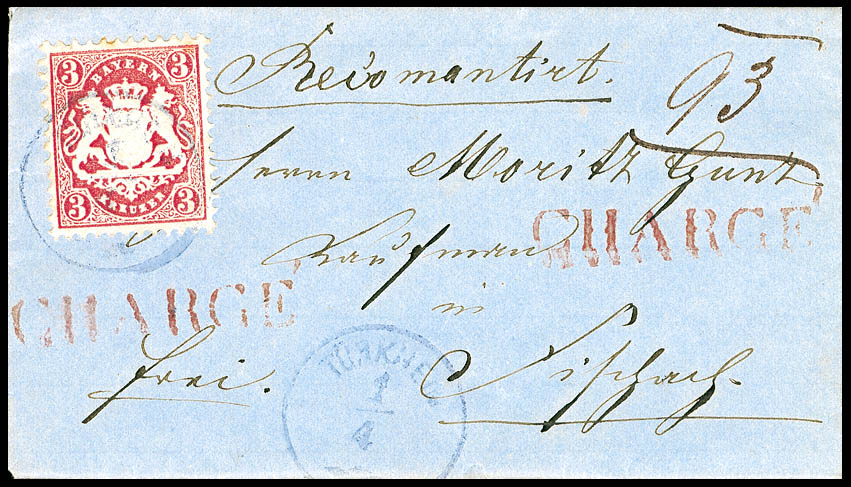 3 BAYERN 3
3 KREUZER 3
Recomantirt.
93
Herrn Moritz Gunz
Kaufman
in
CHARGÉ
CHARGÉ
frei.
Fischach.
TÜRKHEIM
1
4